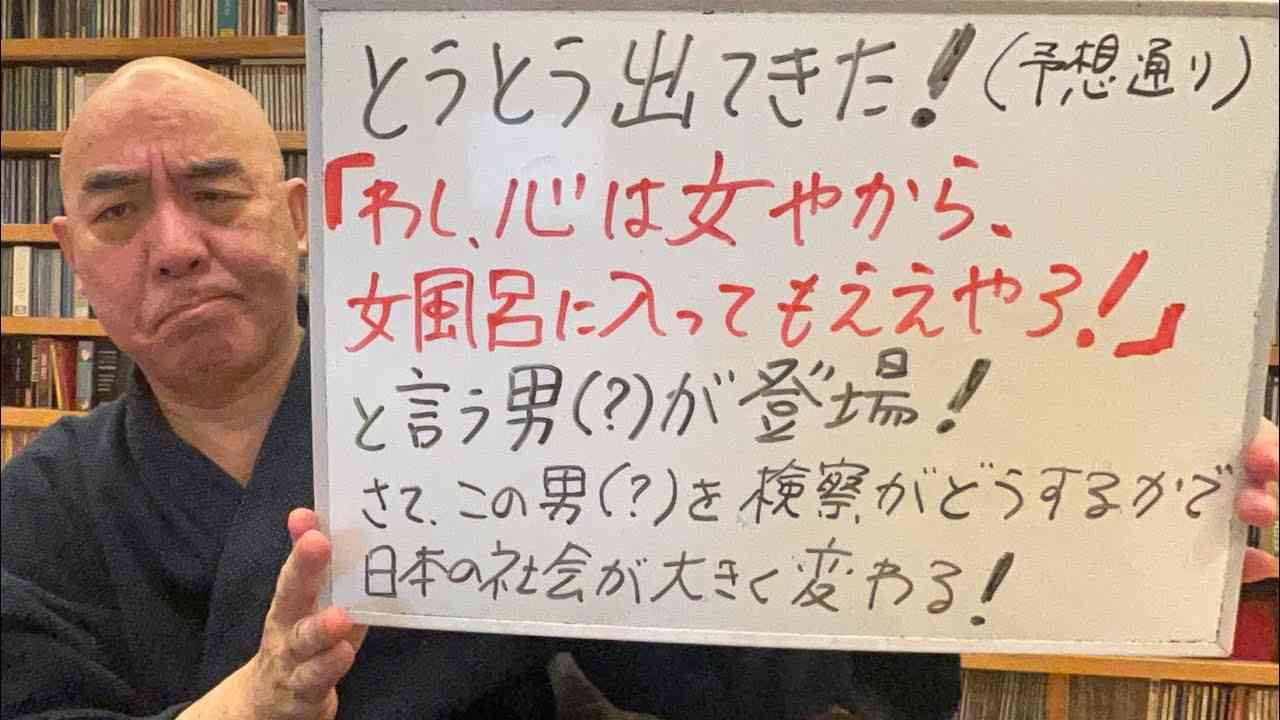 とうとう出てきた！(予想通り)
「わし、心は女やから、
女風呂に入ってもええやろ！」
と言う男(?)が登場！
さて、この男(?)を検察がどうするかで
日本の社会が大きく変わる！